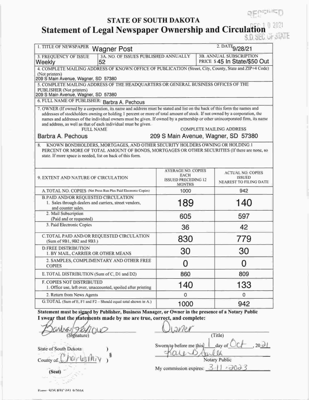 STATE OF SOUTH DAKOTA
Statement of Legal Newspaper Ownership and Circulation
1. TITLE OF NEWSPAPER Wagner Post
2. DATE 9/28/21
3. FREQUENCY OF ISSUE Weekly
3A. NO. OF ISSUES PUBLISHED ANNUALLY 52
3B. ANNUAL SUBSCRIPTION PRICE $ 45 In State/$50 Out
4. COMPLETE MAILING ADDRESS OF KNOWN OFFICE OF PUBLICATION (Street, City, County, State and ZIP+4 Code) (Not printers)
209 S Main Avenue, Wagner, SD 57380
5. COMPLETE MAILING ADDRESS OF THE HEADQUARTERS OR GENERAL BUSINESS OFFICES OF THE PUBLISHER (Not printers)
209 S Main Avenue, Wagner, SD 57380
6. FULL NAME OF PUBLISHER: Barbra A. Pechous
7. OWNER (If owned by a corporation, its name and address must be stated and list on the back of this form the names and
addresses of stockholders owning or holding 1 percent or more of total amount of stock. If not owned by a corporation, the
names and addresses of the individual owners must be given. If owned by a partnership or other unincorporated firm, its name
and address, as well as that of each individual must be given.
FULL NAME COMPLETE MAILING ADDRESS
Barbra A. Pechous 209 S Main Avenue, Wagner, SD 57380
8. KNOWN BONDHOLDERS, MORTGAGES, AND OTHER SECURITY HOLDERS OWNING OR HOLDING 1
PERCENT OR MORE OF TOTAL AMOUNT OF BONDS, MORTGAGES OR OTHER SECURITIES (If there are none, so
state. If more space is needed, list on back of this form).
9. EXTENT AND NATURE OF CIRCULATION
AVERAGE NO. COPIES EACH ISSUED PRECEDING 12 MONTHS
ACTUAL NO. COPIES ISSUED NEAREST TO FILING DATE
A. TOTAL NO. COPIES (Net Press Run Plus Paid Electronic Copies) 1000 942
B. PAID AND/OR REQUESTED CIRCULATION
1. Sales through dealers and carriers, street vendors, and counter sales 189 140
2. Mail Subscription (Paid and or requested) 605 597
3. Paid Electronic Copies 36 42
C. TOTAL PAID AND/OR REQUESTED CIRCULATION (Sum of 9B1, 9B2 and 9B3.) 830 779
D. FREE DISTRIBUTION
1. BY MAIL, CARRIER OR OTHER MEANS 30 30
2. SAMPLES, COMPLIMENTARY AND OTHER FREE COPIES 0 0
E. TOTAL DISTRIBUTION (Sum of C, D1 and D2) 860 809
F. COPIES NOT DISTRIBUTED
1. Office use, left over, unaccounted, spoiled after printing 140 133
2. Return from News Agents 0 0
G. TOTAL (Sum of E, F1 and F2 - Should equal total shown in A) 1000 942
Statement must be signed by Publisher, Business Manager, or Owner in the presence of a Notary Public
I swear that the statements made by me are true, correct, and complete:
Owner
(Signature) (Title)
State of South Dakota )
County of )
§
(Seal)
Sworn to before me this 1 day of Oct, 2021
Notary Public
My commission expires: 3-11-2023